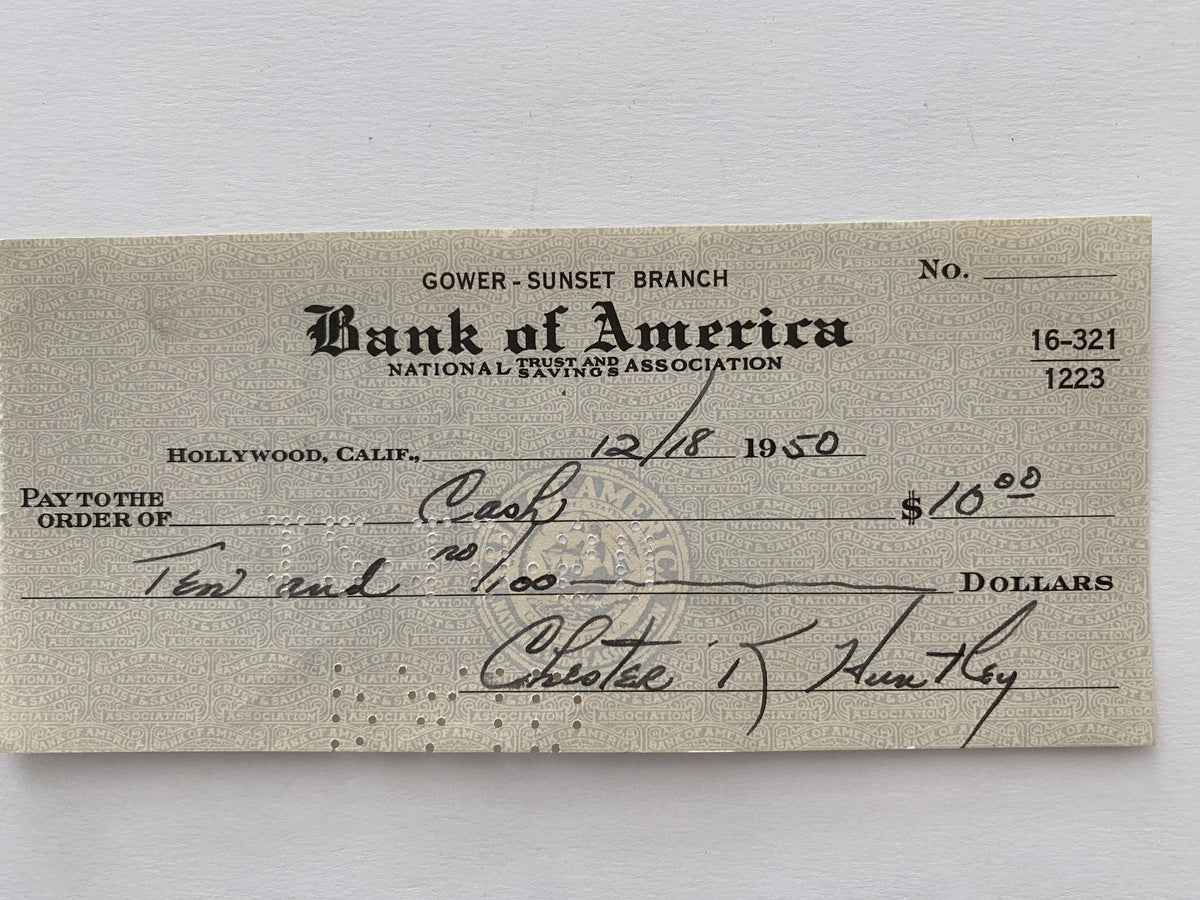 GOWER - SUNSET BRANCH
No.
Bank of America
NATIONAL TRUST AND SAVINGS ASSOCIATION
16-321
1223
HOLLYWOOD, CALIF., 12/18 1950
PAY TO THE
ORDER OF Cash $10 00
Ten and no/100 DOLLARS
Chester R Huntley